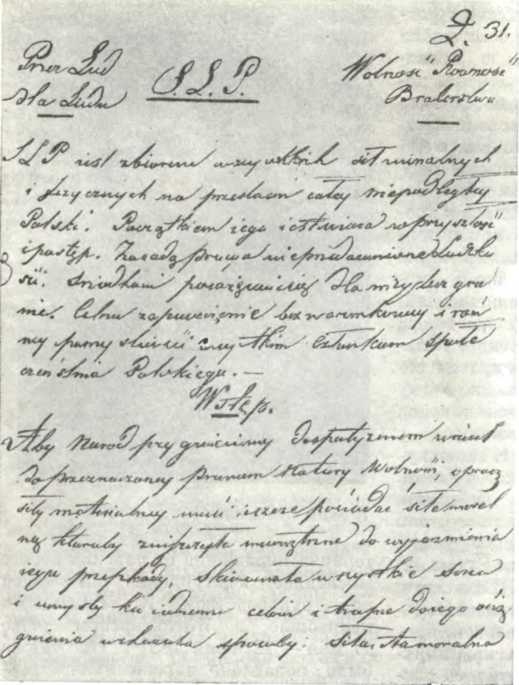 Z. 31.
Przez Lud S.L.P. Wolność Równość
dla Ludu Braterstwo
SLP jest zbiorem wszystkich sił moralnych
i fizycznych na przestrzeni całej niepodległej
Polski. Początkiem jego jest wiara w przyszłość
i postęp. Zasadą prawa nieprzedawnione Ludzko
ści. Środkami poświęcenie dla niej bez gra
nic. Celem zapewnienie bezwarunkowej i rów
nej pomyślności wszystkim członkom społe
czeństwa Polskiego. —
Wstęp.
Aby Naród przygnieciony despotyzmem wrócił
do przeznaczonej prawem Natury Wolności, oprócz
siły materialnej musi jeszcze posiadać siłę moral
ną któraby zwycięsko do wyjarzmienia
jego przeszkody, skierowała wszystkie serca
i umysły ku jednemu celowi i trafne do jego osią
gnienia wskazała sposoby: siła ta moralna